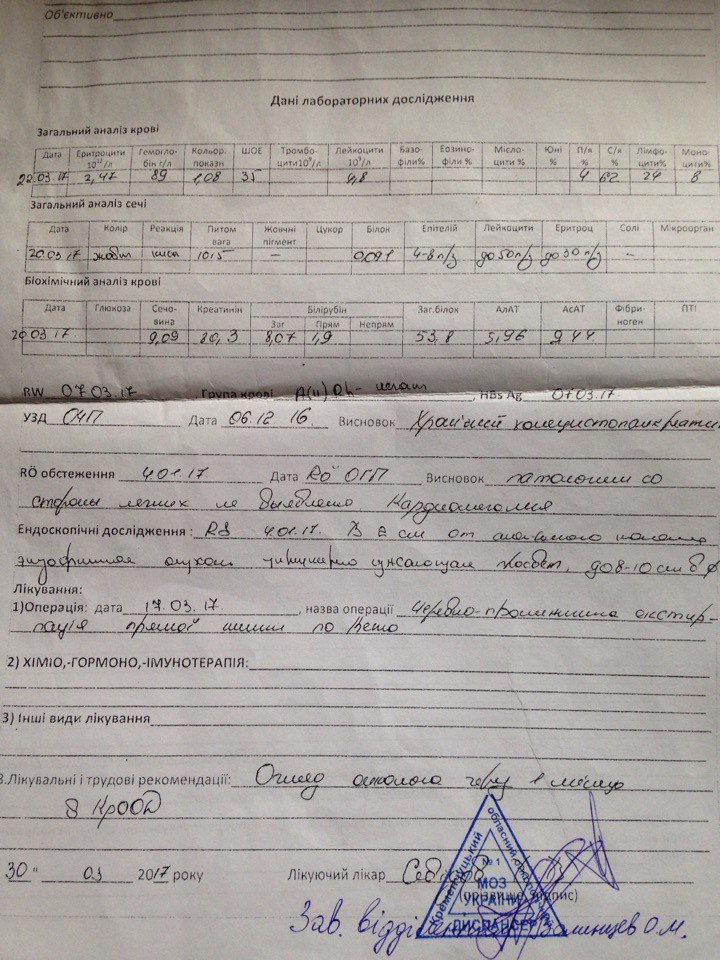 Об'єктивно
Дані лабораторних дослідження
Загальний аналіз крові
Дата Еритроцити 10¹²/л Гемогло-бін г/л Кольор. показн ШОЕ Тромбо-цити10⁹/л Лейкоцити 10⁹/л Базо-філи% Еозино-філи % Мієло-цити % Юні % П/я % С/я % Лімфо-цити% Моно-цити%
20.03.17 2,47 89 1,08 35 4,8 4 62 24 8
Загальний аналіз сечі
Дата Колір Реакція Питом вага Жовчні пігмент Цукор Білок Епітелій Лейкоцити Еритроц Солі Мікроорган
20.03.17 жовт кисл 1015 – 0,091 4-8 п/з до 50 п/з до 30 п/з –
Біохімічний аналіз крові
Дата Глюкоза Сечо-вина Креатинін Білірубін Заг.білок АлАТ АсАТ Фібри-ноген ПТІ
Заг Прям Непрям
20.03.17 9,09 80,3 8,07 1,9 53,8 5,96 9,44
RW 07.03.17 Група крові A(II) Rh- негат, HBs Ag 07.03.17.
УЗД ОЧП Дата 06.12.16 Висновок
RÖ обстеження 4.01.17 Дата RÖ ОГП Висновок патологии со
стороны легких не выявлено Кардиомегалия
Ендоскопічні дослідження : RS 4.01.17. В см от анального
экзофитная опухоль циркулярно суживающая просвет, до 8-10 см
Лікування:
1)Операція: дата 17.03.17, назва операції Черевно-промежинна екстир-
пація прямої кишки по Кеню
2) ХІМІО,-ГОРМОНО,-ІМУНОТЕРАПІЯ:
3) Інші види лікування
3.Лікувальні і трудові рекомендації: Огляд онколога через 1 місяць
в КрООД
30 " 03 2017 року Лікуючий лікар
(прізвище, підпис)
Кременчуцький обласний онкологічний
№ 1
МОЗ
УКРАЇНИ
ДИСПАНСЕР
Зав. відділенням О.М.